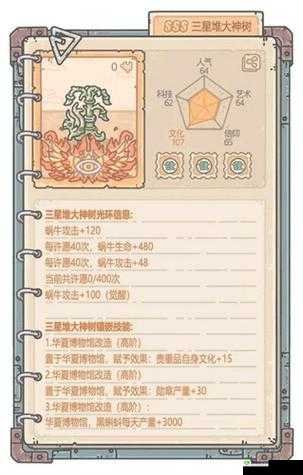 SSS 三星堆大神树
0
人气
64
科技
62
艺术
64
文化
107
信仰
65
三星堆大神树光环信息:
蜗牛攻击+120
每许愿40次，蜗牛生命+480
每许愿40次，蜗牛攻击+48
当前共许愿0/400次
蜗牛攻击+100（觉醒）
三星堆大神树镶嵌技能:
1.华夏博物馆改造（高阶）
置于华夏博物馆，赋予效果：贵重品自身文化+15
2.华夏博物馆改造（高阶）
置于华夏博物馆，赋予效果：勋章产量+30
3.华夏博物馆改造（高阶）:
华夏博物馆，黑蝌蚪每天产量+3000